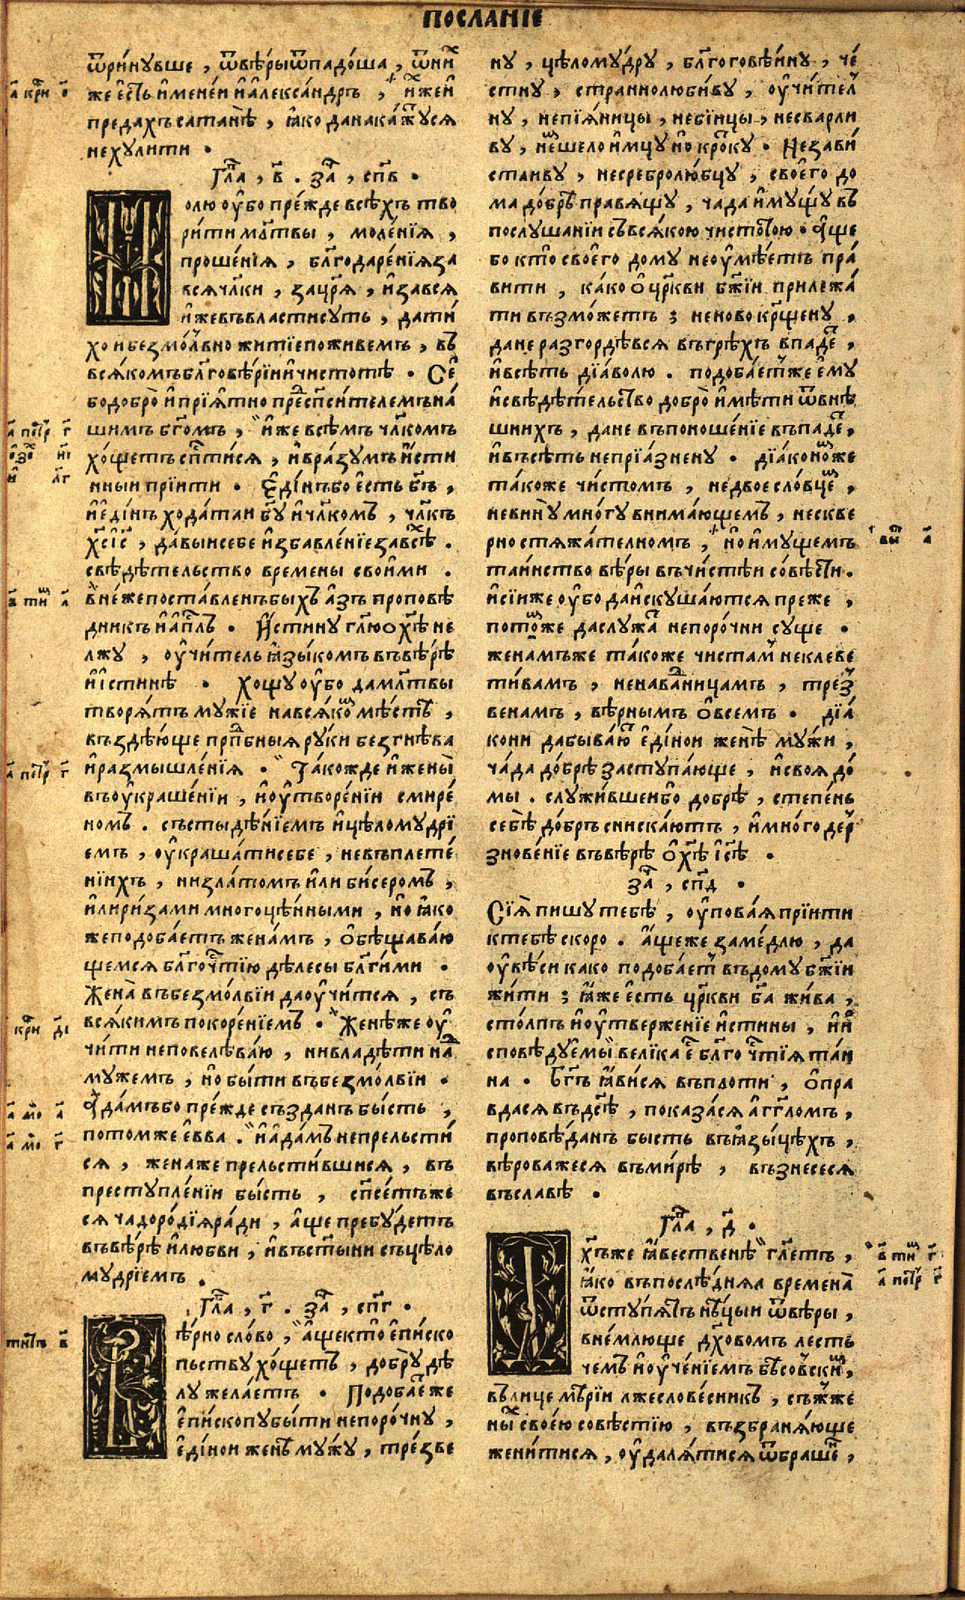 ПОСЛАНІЕ
ѿри́нувше , ѿвѣ́рыѿпадо́ша , ѿни́х
же е҆́сть и҆мене́й и҆але́ѯандръ , и҆́хже и҆
а҃ кри о҃
предахъ сатанѣ̀ , ꙗ҆́ко данака́жутся
не хулити .
Гла҃ , в҃ . за҃ , сп҃в .
Молю ᲂу҆̀бо пре́жде всѣ́хъ тво
ри́ти мл҃твы , моле́нїꙗ ,
проше́нїꙗ , бл҃годаре́нїꙗ за
всꙗ чл҃ки , за цр҃ꙗ , и҆ за всꙗ
и҆́же въ вла́сти суть , да ти́
хо и безмо́лвно житїе поживемъ , въ
всꙗкомъ бл҃говѣ́рїи и҆ чистотѣ̀ . Се́
бо добро̀ и҆ прїꙗ́тно пред сп҃си́телемъ на́
шимъ бг҃омъ , и҆́же всѣ́мъ чл҃комъ
а҃ петр г҃
хо́щетъ сп҃ти́сꙗ , и҆ в ра́зумъ и҆́сти
нныи прїити . Е҆ди́нъ бо е҆сть бг҃ъ ,
и҆ е҆ди́нъ хода́таи бг҃у и҆ чл҃комъ , чл҃къ
хс҃ і҆с҃ , да́выи себѐ и҆збавле́нїе за всѣ́х .
свѣдѣ́тельство времены свои́ми .
в҃ тим а҃
в не́же поста́вленъ бы́хъ а҆́зъ проповѣ́
дникъ и҆ а҆пⷭ҇лъ . И҆́стину гл҃ю о хс҃ѣ не
лжу , ᲂу҆чи́тель ꙗ҆зы́комъ въ вѣ́рѣ
и҆ и҆́стинѣ . хощу ᲂу҆̀бо да мл҃твы
творꙗ́тъ мужїе на всꙗ́ком мѣ́стѣ ,
въздѣ́юще прпⷣбныꙗ ру́ки без гнѣва
и҆ размышле́нїꙗ . Та́кожде и҆ жены̀
а҃ петр г҃
въ ᲂу҆краше́нїи , и҆ ᲂу҆творе́нїи смире́
номъ . съ стыдѣ́нїемъ и҆ цѣлому́дрї
емъ , ᲂу҆краша́ти себе , не въ плете́
нїихъ , ни зла́томъ и҆ли би́серомъ ,
и҆ли ри́зами многоцѣ́нными , но ꙗ҆́ко
же подоба́етъ жена́мъ , ѡ҆бѣщава́ю
щемсꙗ бл҃гоче́стїю дѣ́лесы бл҃ги́ми .
Жена̀ въ безмо́лвїи да ᲂу҆чи́тсꙗ , съ
всꙗ́кимъ покоре́нїемъ . Женѣ́ же ᲂу҆
кри д҃і
чи́ти не повелѣва́ю , ни владѣ́ти на́д
мужемъ , но бы́ти въ безмо́лвїи .
А҆да́мъ бо пре́жде създанъ бы́сть ,
а҃ мо а҃
пото́м же е҆́вва . и҆ а҆да́мъ не прельсти́
а҃ мо г҃
сꙗ , жена́ же прельсти́вшисꙗ , въ
преступле́нїи бы́сть , спⷭ҇е́тъ же
сꙗ чадоро́дїꙗ ради , а҆́ще пребу́детъ
въ вѣ́рѣ и҆ любви , и҆ въ свꙗты́ни съ цѣло
мудрїемъ .
Гла҃ , г҃ . за҃ , сп҃г .
Вѣ́рно сло́во , а҆́ще кто̀ е҆пи́ско
пьству хо́щетъ , добру дѣ́
лу жела́етъ . Подоба́ет же
е҆пи́скопу бы́ти непоро́чну ,
е҆ди́нои жены̀ му́жу , тре́зве
ну , цѣлому́дру , бл҃гоговѣ́йну , че́
стну , страннолюби́ву , ᲂу҆чи́тел
ну , не пїꙗ́ницы , не бі́ицы , не сварли
ву , не мшелоимцу но кро́тку . Не зави́
стливу , не сребролю́бцу , свое́го до
ма до́брѣ пра́вꙗщу , ча́да и҆му́щу въ
послуша́нїи съ всꙗ́кою чистото́ю . а҆́ще
бо кто̀ свое́го дому не ᲂу҆мѣ́етъ пра́
вити , ка́ко ѡ҆ цр҃кви бж҃їи прилежа́
ти възмо́жетъ ; не ново кре́щену ,
да не разгордѣ́всꙗ въ грѣ́хъ впаде́т ,
и҆ в сѣ́ть дїа́волю . подоба́ет же е҆му
и҆ свѣдѣ́тельство добро̀ и҆мѣ́ти ѿ внѣ́
шнихъ , да не въ поноше́нїе въпаде́т ,
и҆ в сѣ́ть непрїа́знену . дїа́коном же
та́коже чи́стомъ , не двоесло́вцем ,
не вину мно́гу внима́ющемъ , не скве
рно стꙗжа́телномъ , но и҆му́щемъ
таи́нство вѣ́ры въ чи́стѣи со́вѣсти .
и҆ сїи́ же ᲂу҆́бо да и҆скуша́ютсꙗ пре́же ,
пото́м же да слу́жат непоро́чни суще .
жена́мъ же та́коже чи́стам не клеве
ти́вамъ , не нава́дницамъ , тре́з
венамъ , вѣ́рнымъ ѡ҆ всемъ . дїа́
кони да быва́ют е҆ди́нои женѣ̀ му́жи ,
ча́да до́брѣ заступа́юще , и҆ своꙗ до́
мы . служи́вшеи бо до́брѣ , степе́нь
себѣ̀ до́бръ сниска́ютъ , и҆ мно́го дер
знове́нїе въ вѣ́рѣ ѡ҆ хс҃ѣ і҆с҃ѣ .
за҃ , сп҃д .
Сїꙗ̀ пишу тебѣ̀ , ᲂу҆пова́ꙗ прїити
к тебѣ̀ ско́ро . а҆́ще же заме́длю , да
ᲂу҆вѣ́си како подоба́ет въ дому́ бж҃їи
жи́ти ; ꙗ҆́же е҆́сть цр҃кви бг҃а жи́ва ,
сто́лпъ и҆ ᲂу҆твержде́нїе и҆стины , и҆ и҆
сповѣ́дуемы вели́ка е҆́ бл҃гоче́стїꙗ таи
на . Бг҃ъ ꙗ҆ви́сꙗ въ пло́ти , ѡ҆пра
вда́сꙗ въ дс҃ѣ , показа́сꙗ а҆́гг҃ломъ ,
проповѣ́данъ бысть въ ꙗ҆зы́цѣхъ ,
вѣ́рова же сꙗ въ ми́рѣ , възнесесꙗ
въ славѣ .
Гла҃ , д҃ .
Дх҃ъ же ꙗ҆́вественѣ гл҃етъ ,
в҃ тим г҃
ꙗ҆́ко въ послѣ́днꙗꙗ времена̀
а҃ петр г҃
ѿсту́пꙗтъ нѣ́цыи ѿ вѣ́ры ,
вне́млюще дх҃овомъ лесть
чемъ и҆ ᲂу҆че́нїемъ бѣсо́вским ,
въ лице мѣ́рїи лжеслове́сникъ , съжже
ны́х свое́ю со́вѣстїю , възбранꙗ́юще
жени́тисꙗ , ᲂу҆далꙗ́тисꙗ ѿ бра́шен ,